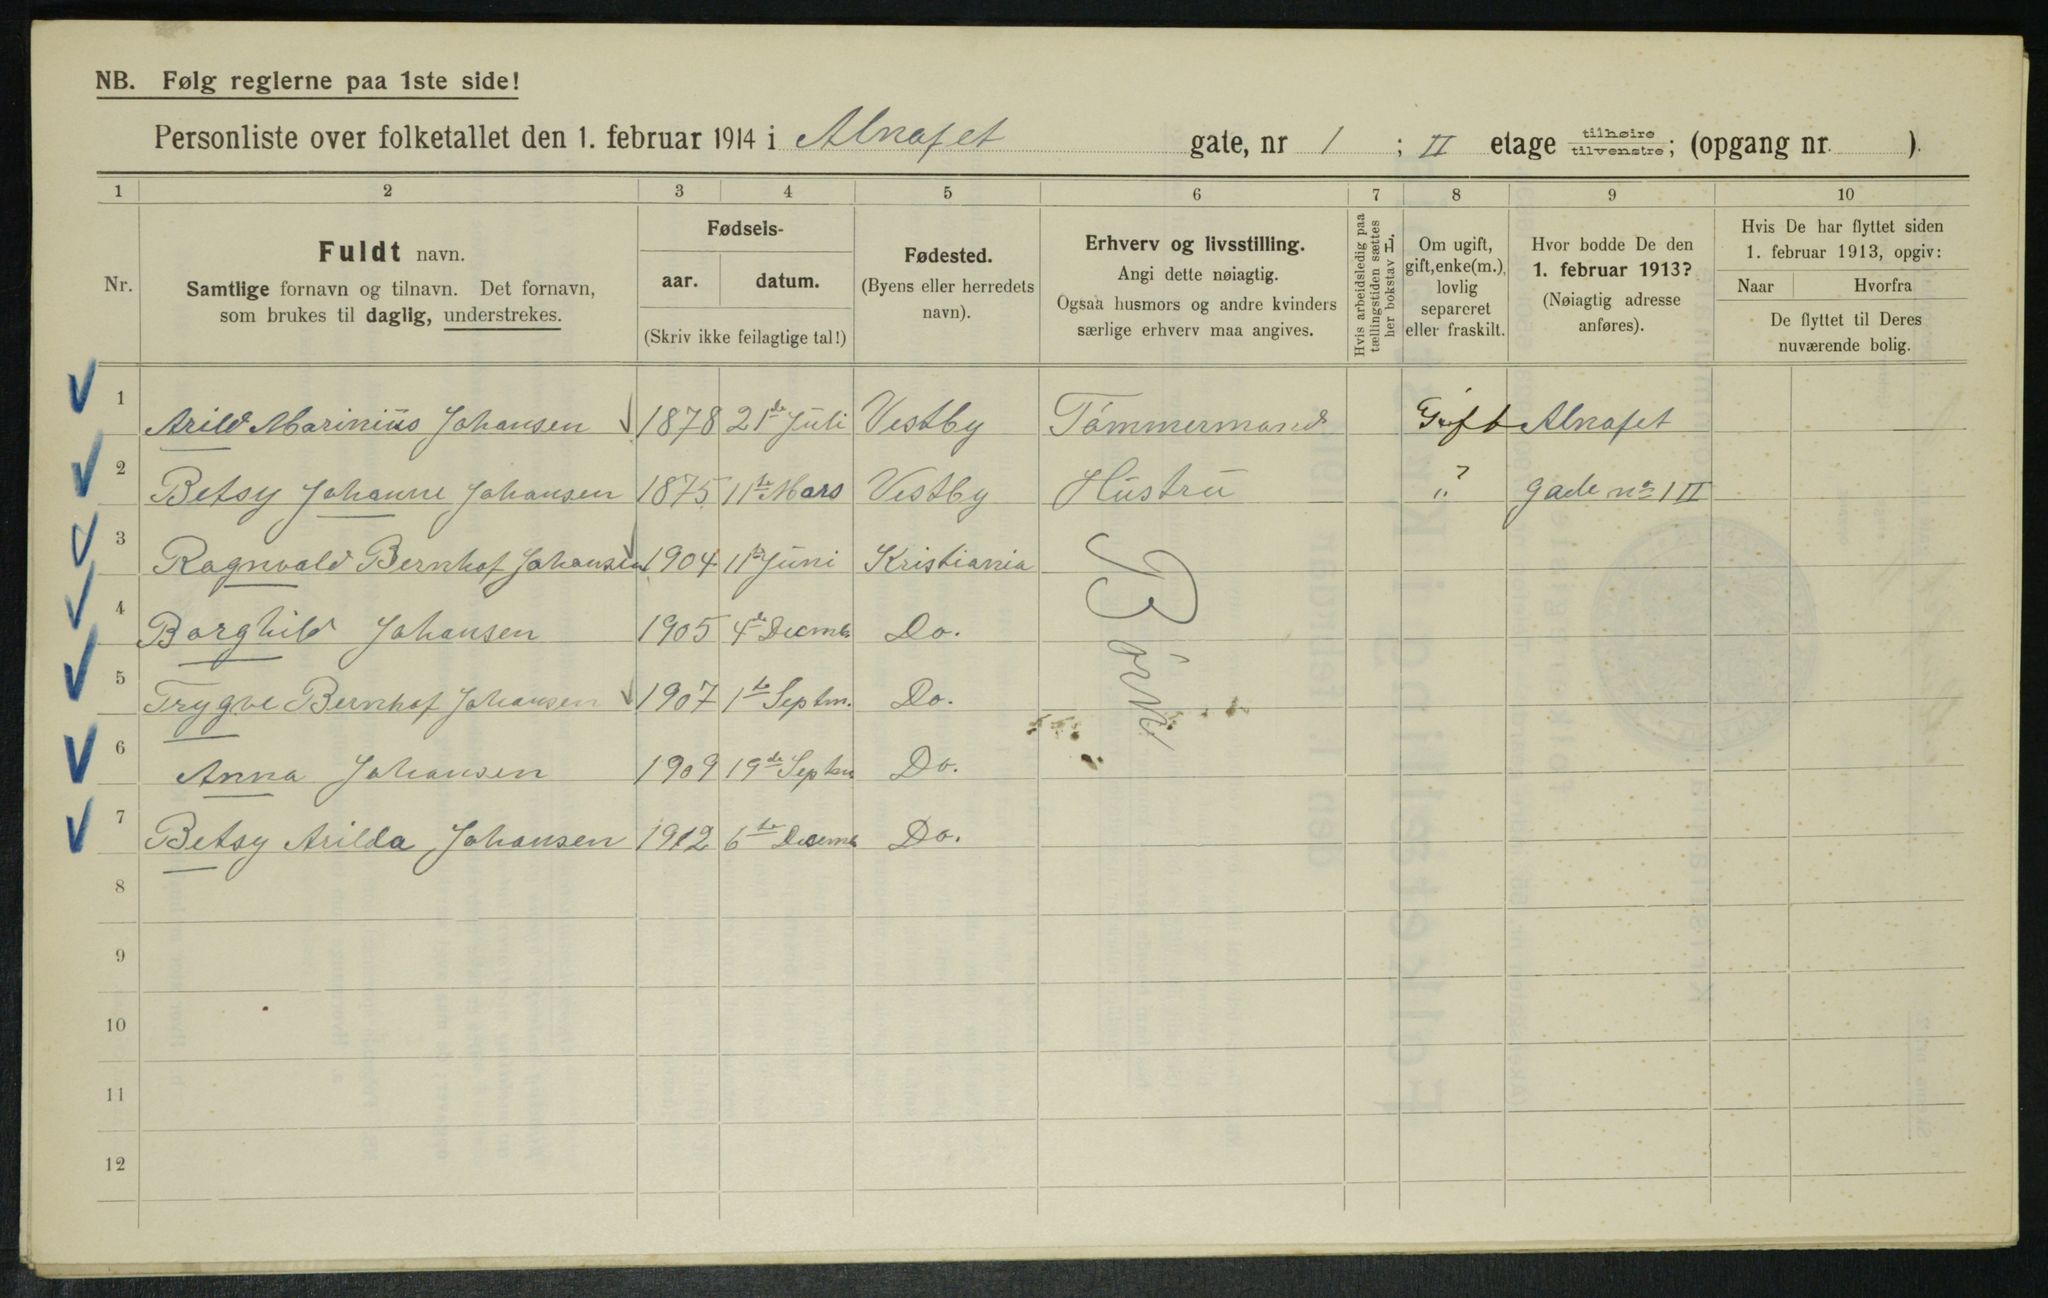 NB. Følg reglerne paa 1ste side!
Personliste over folketallet den 1. februar 1914 i Alnafet gate, nr 1 ; II etage tilhøire tilvenstre; (opgang nr. ).
1 2 3 4 5 6 7 8 9 10
Nr.
Fuldt navn.
Samtlige fornavn og tilnavn. Det fornavn,
som brukes til daglig, understrekes.
Fødsels-
aar. datum.
(Skriv ikke feilagtige tal!)
Fødested.
(Byens eller herredets
navn).
Erhverv og livsstilling.
Angi dette nøiagtig.
Ogsaa husmors og andre kvinders
særlige erhverv maa angives.
Hvis arbeidsledig paa
tællingstiden sættes
her bokstav L.
Om ugift,
gift, enke(m.),
lovlig
separeret
eller fraskilt.
Hvor bodde De den
1. februar 1913?
(Nøiagtig adresse
anføres).
Hvis De har flyttet siden
1. februar 1913, opgiv:
Naar Hvorfra
De flyttet til Deres
nuværende bolig.
1 Arild Marinius Johansen 1878 21de Juli Vestby Tømmermand Gift Alnafet
2 Betsy Johanne Johansen 1875 11te Mars Vestby Hustru " gade no 1 II
3 Ragnvald Bernhof Johansen 1904 11te Juni Kristiania
4 Borghild Johansen 1905 4de Decmb Do.
5 Trygve Bernhof Johansen 1907 1te Septm. Do.
6 Anna Johansen 1909 19de Septm Do.
7 Betsy Arilda Johansen 1912 6te Desemb Do.
Børn
8
9
10
11
12